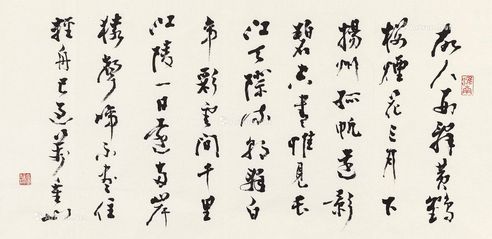 故人西辭黃鶴
樓煙花三月下
揚州孤帆遠影
碧空盡惟見長
江天際流朝辭白
帝彩雲間千里
江陵一日還兩岸
猿聲啼不盡住
輕舟已過萬重山